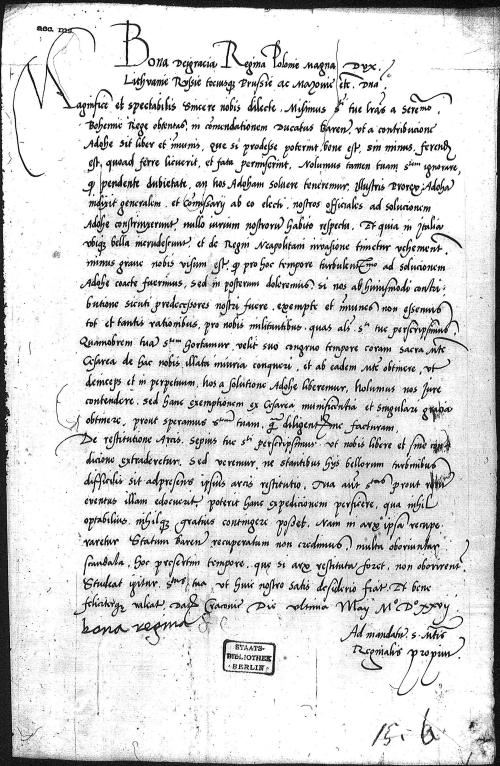 acc. ms.
Bona Dei gracia Regina Polonie Magna Dux
Lithvanie Rvssie tociusq Prussie ac Mazouie etc. Dna
Magnifice et spectabilis sincere nobis dilecte. Misimus tue lras a Sermo
Bohemie Rege obtentas, in comendationem Ducatus Baren, vt a contribucione
Adohe sit liber et imunis, que si prodesse poterint, bene est, sin minus, ferend
est, quoad ferre licuerit, et fata permiserint. Nolumus tamen tuam ignorare,
q pendente dubietate, an nos Adoham soluere teneremur, Illustris Prorex Adoha
indixit generalem, et Comissarij ab eo electi, nostros officiales ad solucionem
Adohe constrinxerunt, nullo iurium nostroru habito respectu. Et quia in Italia
vbiqz bella increbescunt, et de Regni Neapolitani inuasione timetur vehement,
minus graue nobis visum est, q pro hoc tempore ad solucionem
Adohe coacte fuerimus, sed in posterum doleremus, si nos ab huiusmodi contri
butione sicuti predecessores nostri fuere, exempte et imunes non essemus
tot et tantis rationibus, pro nobis militantibus, quas ali tue perscripsimus
Quamobrem tua hortamur, velit suo congruo tempore coram Sacra Mte
Cesarea de hac nobis illata iniuria conqueri, et ab eadem Mte obtinere, vt
deinceps et in perpetuum, nos a solutione Adohe liberemur, Nolumus nos Iure
contendere, sed hanc exemptionem ex Cesarea munificentia et singulari gracia
obtinere, prout speramus tuam, facturam.
De restitutione Arcis, sepius tue perscripsimus vt nobis libere et sine con
dicione extraderetur, Sed veremur, ne stantibus hijs bellorum turbinibus
difficilis sit adpresens ipsius arcis restitutio, Tua prout
euentus illam edocuerit, poterit hanc expedicionem perficere, qua nihil
optabilius, nihilqz gratius contingere posset. Nam in arx ipsa recupe
raretur Statum Baren recuperatum non credimus, multa oboruntur
scandala, hoc presertim tempore, que si arx restituta foret, non oborirent
Studeat igitur tua, vt huic nostro satis desiderio fiat. Et bene
feliciterqz valeat. Dat Cracouie Die vltima May Mo Do XXVij
bona regina
Ad mandatu S. Mtis
Reginalis propriu
STAATS-
BIBLIOTHEK
BERLIN